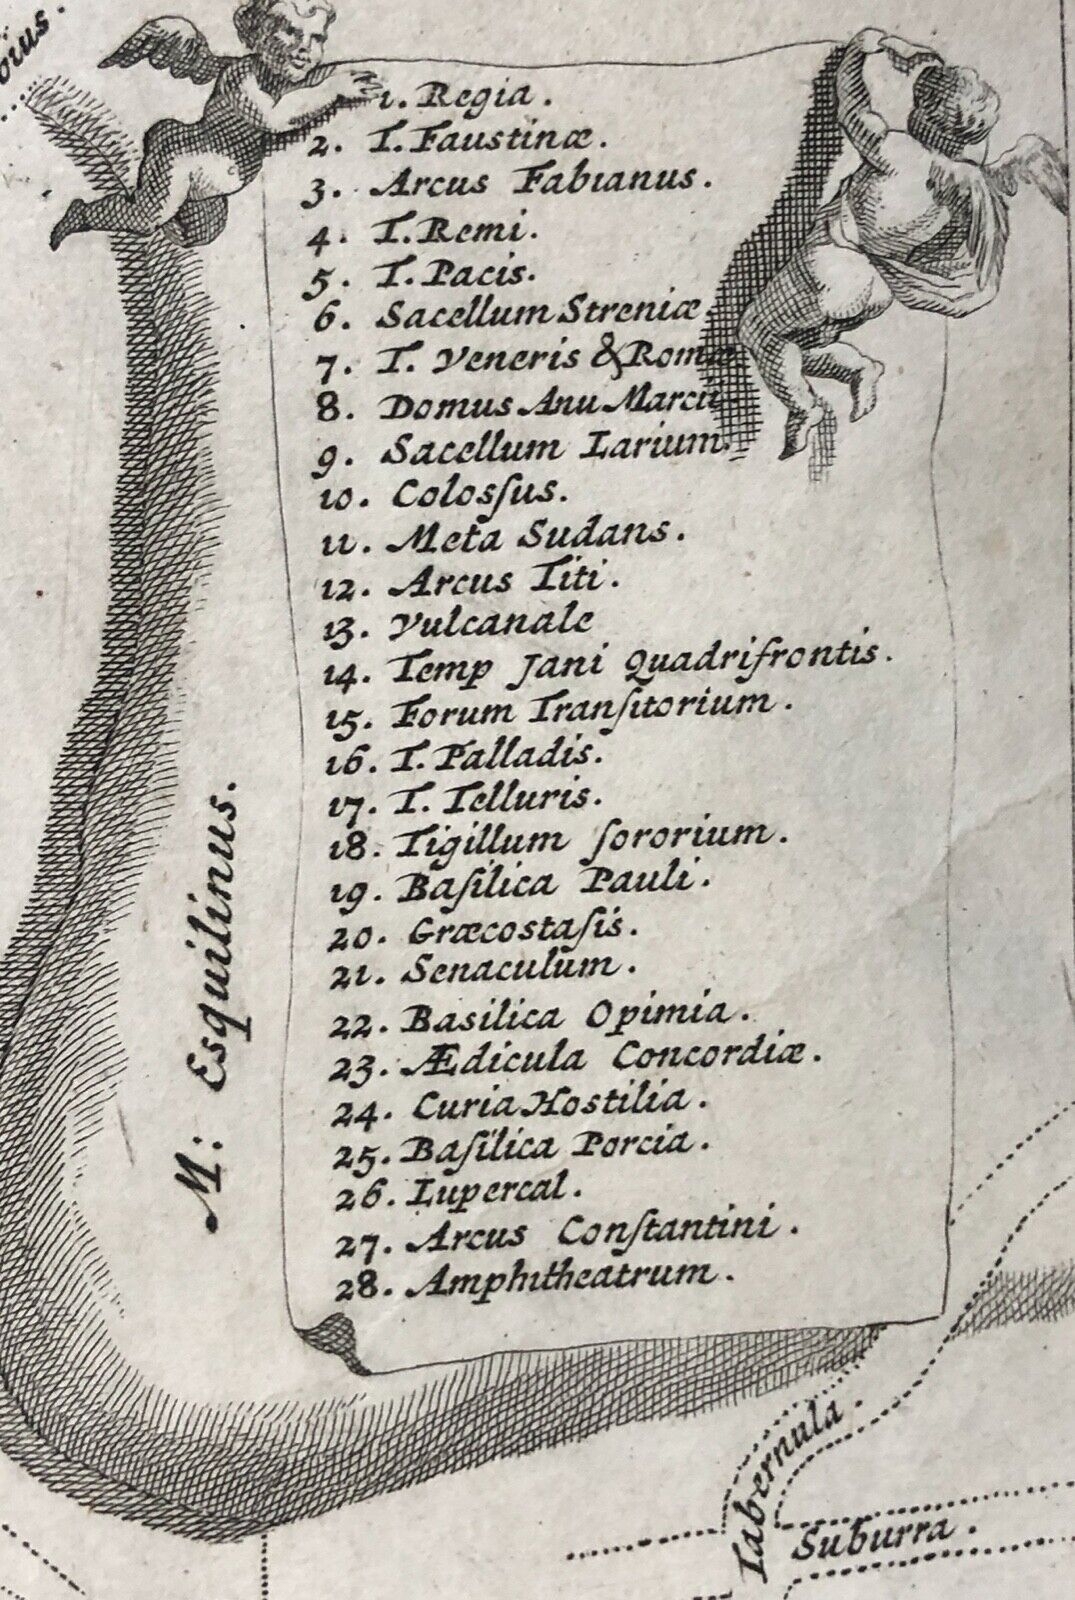 1. Regia.
2. T. Faustinæ.
3. Arcus Fabianus.
4. T. Remi.
5. T. Pacis.
6. Sacellum Streniæ.
7. T. Veneris & Romæ
8. Domus Anu Marcii
9. Sacellum Larium.
10. Colosſus.
11. Meta Sudans.
12. Arcus Titi.
13. Vulcanale
14. Temp Jani Quadrifrontis.
15. Forum Tranſitorium.
16. T. Palladis.
17. T. Telluris.
18. Tigillum ſororium.
19. Baſilica Pauli.
20. Græcostaſis.
21. Senaculum.
22. Basilica Opimia.
23. Ædicula Concordiæ.
24. Curia Hostilia.
25. Baſilica Porcia.
26. Lupercal.
27. Arcus Conſtantini.
28. Amphitheatrum.
M: Esquilinus.
Tabernula.
Suburra.